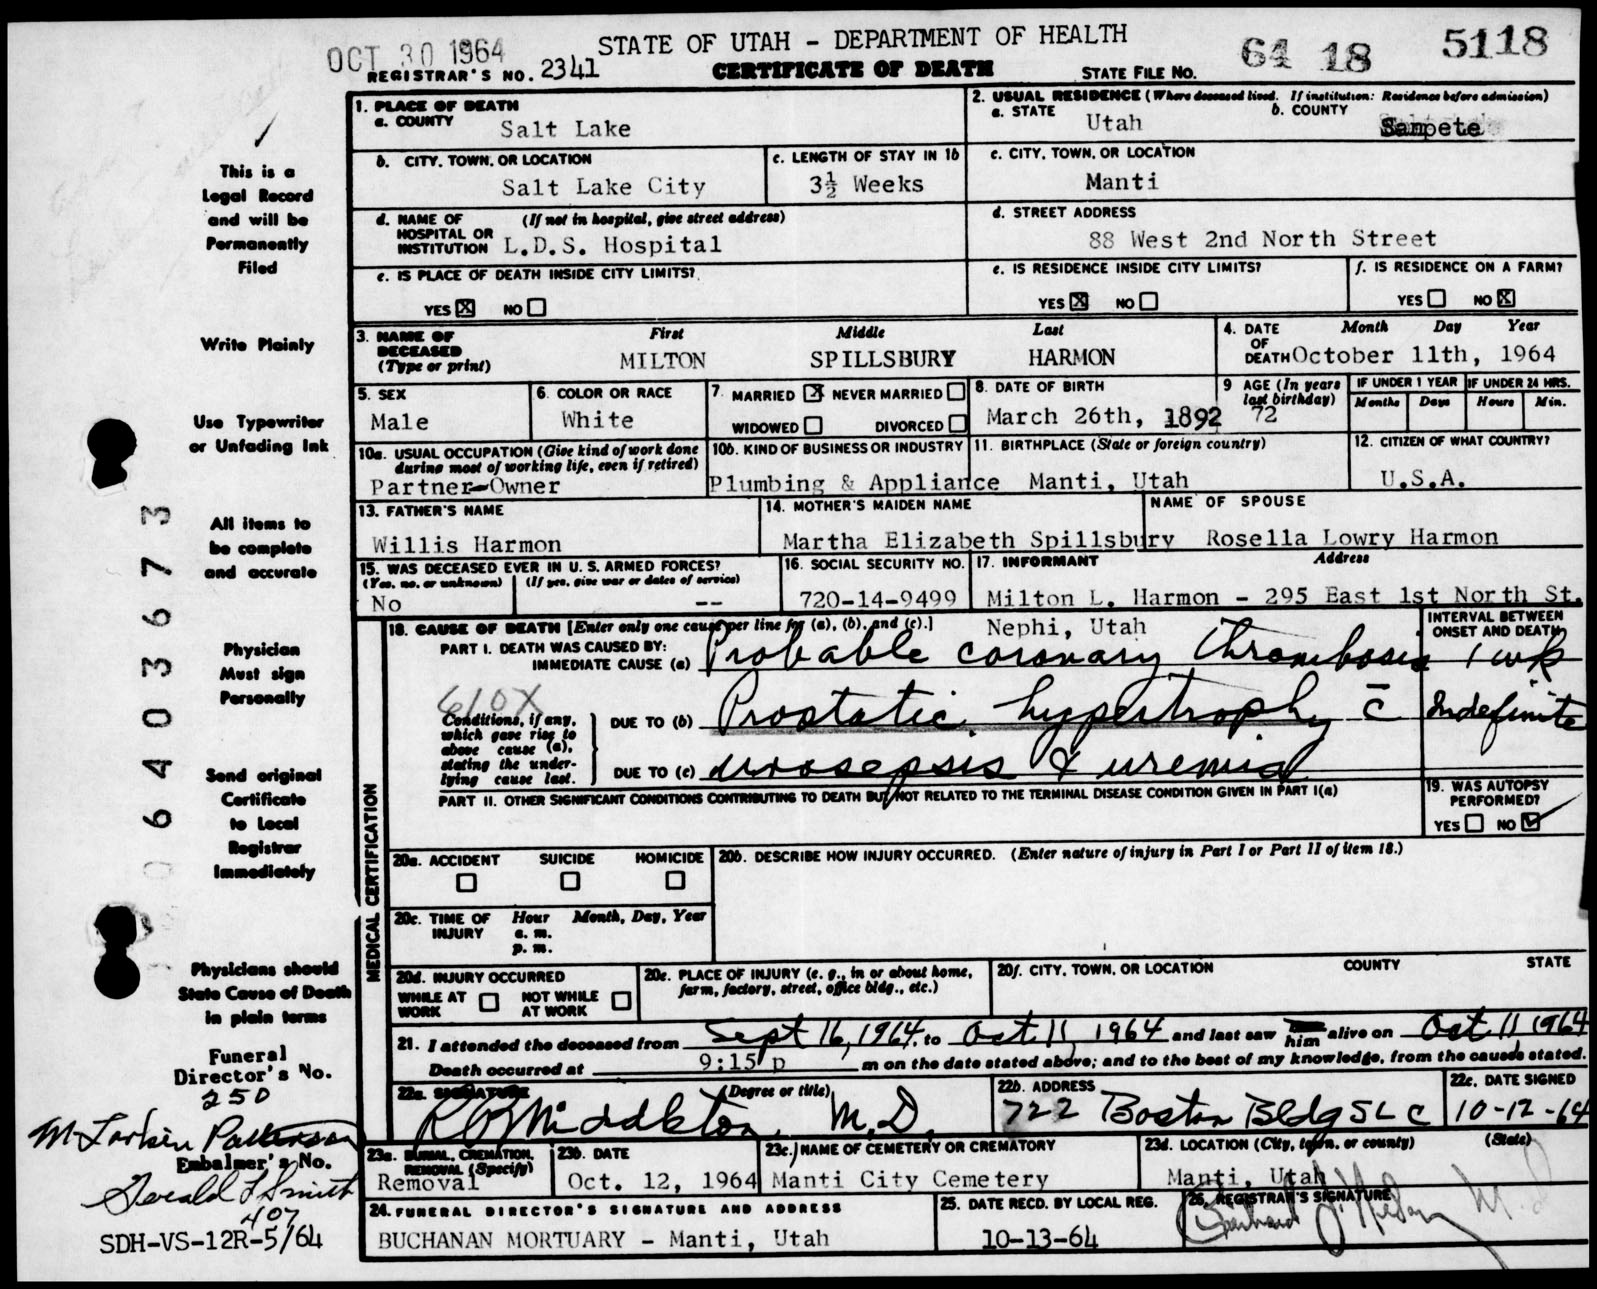 OCT 30 1964
STATE OF UTAH - DEPARTMENT OF HEALTH
64 18 5118
REGISTRAR'S NO. 2341
CERTIFICATE OF DEATH
STATE FILE NO.
This is a
Legal Record
and will be
Permanently
Filed
Write Plainly
Use Typewriter
or Unfading Ink
All items to
be complete
and accurate
Physician
Must sign
Personally
Send original
Certificate
to Local
Registrar
Immediately
Physicians should
State Cause of Death
in plain terms
Funeral
Director's No.
250
M Larkin Patterson
Embalmer's No.
Gerald L Smith
407
SDH-VS-12R-5/64
0640 3673
1. PLACE OF DEATH
a. COUNTY Salt Lake
2. USUAL RESIDENCE (Where deceased lived. If institution: Residence before admission)
a. STATE Utah b. COUNTY Sanpete
b. CITY, TOWN, OR LOCATION Salt Lake City
c. LENGTH OF STAY IN 1b 3½ Weeks
c. CITY, TOWN, OR LOCATION Manti
d. NAME OF HOSPITAL OR INSTITUTION (If not in hospital, give street address) L.D.S. Hospital
d. STREET ADDRESS 88 West 2nd North Street
e. IS PLACE OF DEATH INSIDE CITY LIMITS?
YES X NO
e. IS RESIDENCE INSIDE CITY LIMITS?
YES X NO
f. IS RESIDENCE ON A FARM?
YES NO X
3. NAME OF DECEASED (Type or print)
First Middle Last
MILTON SPILLSBURY HARMON
4. DATE OF DEATH Month Day Year
October 11th, 1964
5. SEX Male
6. COLOR OR RACE White
7. MARRIED X NEVER MARRIED
WIDOWED DIVORCED
8. DATE OF BIRTH March 26th, 1892
9 AGE (In years last birthday) 72
IF UNDER 1 YEAR Months Days
IF UNDER 24 HRS. Hours Min.
10a. USUAL OCCUPATION (Give kind of work done during most of working life, even if retired)
Partner-Owner
10b. KIND OF BUSINESS OR INDUSTRY
Plumbing & Appliance
11. BIRTHPLACE (State or foreign country)
Manti, Utah
12. CITIZEN OF WHAT COUNTRY?
U.S.A.
13. FATHER'S NAME
Willis Harmon
14. MOTHER'S MAIDEN NAME
Martha Elizabeth Spillsbury
NAME OF SPOUSE
Rosella Lowry Harmon
15. WAS DECEASED EVER IN U. S. ARMED FORCES?
(Yes, no, or unknown) (If yes, give war or dates of service)
No --
16. SOCIAL SECURITY NO.
720-14-9499
17. INFORMANT Address
Milton L. Harmon - 295 East 1st North St.
Nephi, Utah
MEDICAL CERTIFICATION
18. CAUSE OF DEATH [Enter only one cause per line for (a), (b), and (c).]
INTERVAL BETWEEN ONSET AND DEATH
PART I. DEATH WAS CAUSED BY:
IMMEDIATE CAUSE (a) Probable coronary thrombosis 1 wk
610X
Conditions, if any, which gave rise to above cause (a), stating the underlying cause last.
DUE TO (b) Prostatic hypertrophy c̄ Indefinite
DUE TO (c) urosepsis & uremia
PART II. OTHER SIGNIFICANT CONDITIONS CONTRIBUTING TO DEATH BUT NOT RELATED TO THE TERMINAL DISEASE CONDITION GIVEN IN PART I(a)
19. WAS AUTOPSY PERFORMED?
YES NO ✓
20a. ACCIDENT SUICIDE HOMICIDE
20b. DESCRIBE HOW INJURY OCCURRED. (Enter nature of injury in Part I or Part II of item 18.)
20c. TIME OF INJURY Hour Month, Day, Year
a. m.
p. m.
20d. INJURY OCCURRED
WHILE AT WORK NOT WHILE AT WORK
20e. PLACE OF INJURY (e. g., in or about home, farm, factory, street, office bldg., etc.)
20f. CITY, TOWN, OR LOCATION COUNTY STATE
21. I attended the deceased from Sept 16, 1964, to Oct. 11, 1964 and last saw him alive on Oct 11, 1964
Death occurred at 9:15 p m on the date stated above; and to the best of my knowledge, from the causes stated.
22a. SIGNATURE (Degree or title)
R O Middleton, M.D.
22b. ADDRESS
722 Boston Bldg SLC
22c. DATE SIGNED
10-12-64
23a. BURIAL, CREMATION, REMOVAL (Specify)
Removal
23b. DATE
Oct. 12, 1964
23c. NAME OF CEMETERY OR CREMATORY
Manti City Cemetery
23d. LOCATION (City, town, or county) (State)
Manti, Utah
24. FUNERAL DIRECTOR'S SIGNATURE AND ADDRESS
BUCHANAN MORTUARY - Manti, Utah
25. DATE RECD. BY LOCAL REG.
10-13-64
26. REGISTRAR'S SIGNATURE